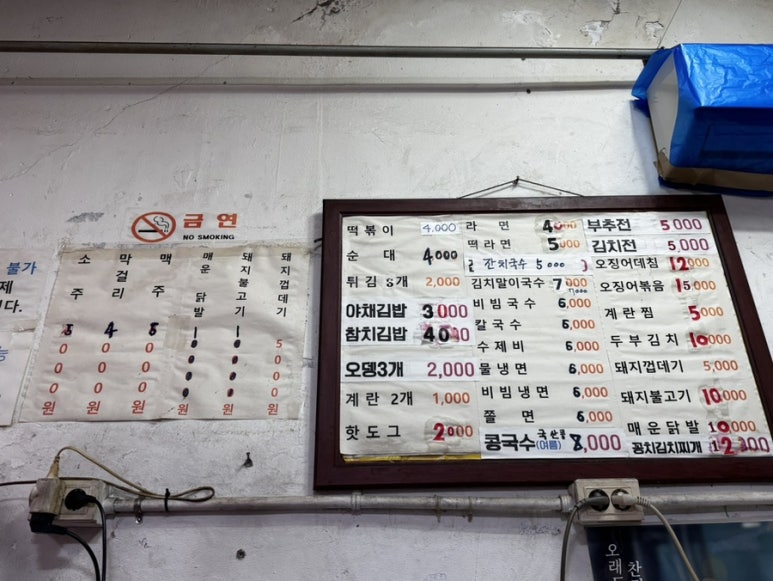 불가
제
다.
금연
NO SMOKING
소주 5000원
막걸리 4000원
맥주 5000원
매운 닭발 10000원
돼지불고기 10000원
돼지껍데기 5000원
떡볶이 4,000
순대 4000
튀김 8개 2,000
야채김밥 3000
참치김밥 4000
오뎅3개 2,000
계란 2개 1,000
핫도그 2000
라면 4000
떡라면 5000
잔치국수 5000
김치말이국수 7000
비빔국수 6,000
칼국수 6,000
수제비 6,000
물냉면 6,000
비빔냉면 6,000
쫄면 6,000
콩국수(여름) 국산콩 8,000
부추전 5000
김치전 5,000
오징어데침 12000
오징어볶음 15000
계란찜 5000
두부김치 10000
돼지껍데기 5,000
돼지불고기 10000
매운닭발 10000
꽁치김치찌개 12000
찬
오래